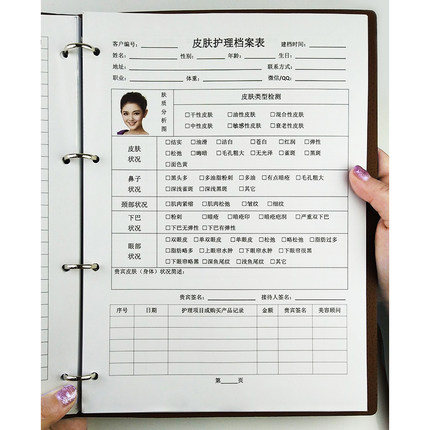 皮肤护理档案表
客户编号： 建档时间：
姓名： 性别： 年龄： 生日：
地址： 联系方式：
职业： 体重： 微信/QQ：
肤质分析图
皮肤类型检测
□干性皮肤 □油性皮肤 □混合性皮肤
□中性皮肤 □敏感性皮肤 □衰老性皮肤
皮肤状况
□结实 □油滑 □洁白 □苍白 □红润 □弹性
□松弛 □晦暗 □毛孔粗大 □无光泽 □雀斑 □黑斑
□面色黄
鼻子状况
□黑头多 □多油脂粉刺 □多油 □有点暗疮 □毛孔粗大
□深浅雀斑 □深浅黑斑 □其它
颈部状况 □肌肉紧绷 □肌肉松弛 □皱纹 □细纹
下巴状况
□粉刺 □暗疮 □暗疮印 □暗疮疤洞 □严重双下巴
□下巴无弹性 □下巴有弹性
眼部状况
□双眼皮 □单双眼皮 □单眼皮 □松弛 □略松弛 □脂肪过多
□脂肪略多 □上眼帘水肿 □下眼帘水肿 □下眼帘很黑
□下眼帘略黑 □深鱼尾纹 □浅鱼尾纹 □其它
贵宾皮肤（身体）状况简述：
贵宾签名： 接待人签名：
序号 日期 护理项目或购买产品记录 金额 贵宾签名 美容顾问
第 页